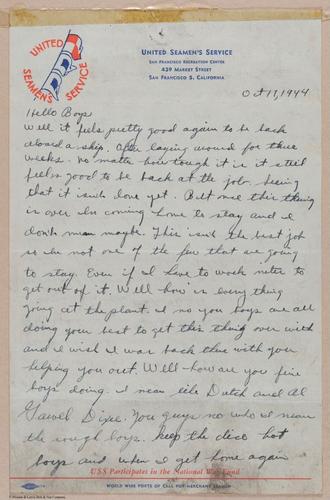 UNITED
SEAMEN'S
SERVICE
UNITED SEAMEN'S SERVICE
SAN FRANCISCO RECREATION CENTER
439 MARKET STREET
SAN FRANCISCO 5, CALIFORNIA
Oct 11, 1944
Hello Boys
Well it feels pretty good again to be back
aboard a ship. After laying around for three
weeks. no matter how tough it is it still
feels good to be back at the job. seeing
that it isn't done yet. But once this thing
is over Im coming home to stay and I
don't mean maybe. This isn't the best job
so Im not one of the few that are going
to stay. Even if I have to work nites to
get out of it. Well how is every thing
going at the plant. I no you boys are all
doing your best to get this thing over with
and I wish I was back there with you
helping you out. Well how are you fine
boys doing. I mean like Dutch and Al
Dixie. You guys no who I mean
the rough boys. Keep the dice hot
boys and when I get home again
USS Participates in the National War Fund
WORLD WIDE PORTS OF CALL FOR MERCHANT SEAMEN